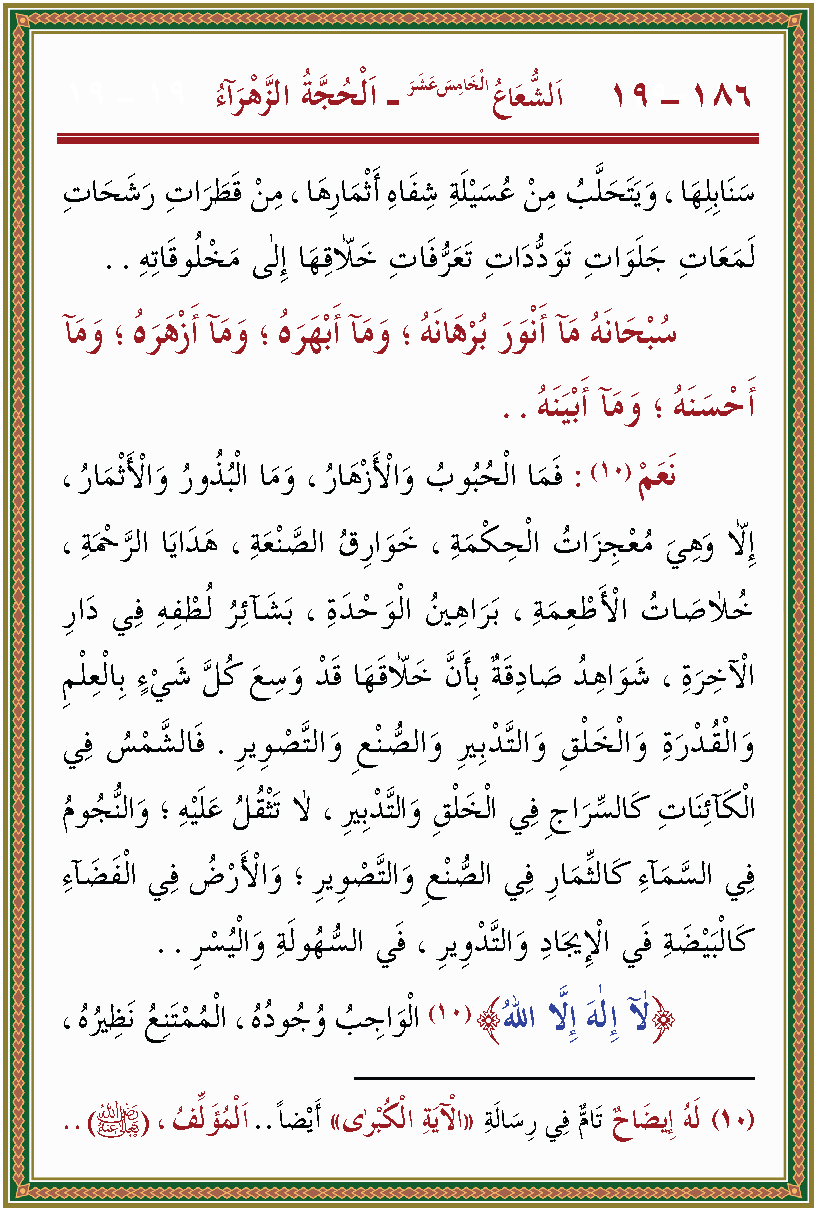 ١٨٦ – ١٩ اَلشُّعَاعُ الْخَامِسَ عَشَرَ ـ اَلْحُجَّةُ الزَّهْرَآءُ ١٩ – ١٩
سَنَابِلِهَا ، وَيَتَحَلَّبُ مِنْ عُسَيْلَةِ شِفَاهِ أَثْمَارِهَا ، مِنْ قَطَرَاتِ رَشَحَاتِ
لَمَعَاتِ جَلَوَاتِ تَوَدُّدَاتِ تَعَرُّفَاتِ خَلاَّقِهَا إِلٰى مَخْلُوقَاتِهِ . .
سُبْحَانَهُ مَآ أَنْوَرَ بُرْهَانَهُ ؛ وَمَآ أَبْهَرَهُ ؛ وَمَآ أَزْهَرَهُ ؛ وَمَآ
أَحْسَنَهُ ؛ وَمَآ أَبْيَنَهُ . .
نَعَمْ (١٠) : فَمَا الْحُبُوبُ وَالْأَزْهَارُ ، وَمَا الْبُذُورُ وَالْأَثْمَارُ ،
إِلاَّ وَهِيَ مُعْجِزَاتُ الْحِكْمَةِ ، خَوَارِقُ الصَّنْعَةِ ، هَدَايَا الرَّحْمَةِ ،
خُلاٰصَاتُ الْأَطْعِمَةِ ، بَرَاهِينُ الْوَحْدَةِ ، بَشَآئِرُ لُطْفِهِ فِي دَارِ
الْآخِرَةِ ، شَوَاهِدُ صَادِقَةٌ بِأَنَّ خَلاَّقَهَا قَدْ وَسِعَ كُلَّ شَيْءٍ بِالْعِلْمِ
وَالْقُدْرَةِ وَالْخَلْقِ وَالتَّدْبِيرِ وَالصُّنْعِ وَالتَّصْوِيرِ . فَالشَّمْسُ فِي
الْكَآئِنَاتِ كَالسِّرَاجِ فِي الْخَلْقِ وَالتَّدْبِيرِ ، لاٰ تَثْقُلُ عَلَيْهِ ؛ وَالنُّجُومُ
فِي السَّمَآءِ كَالثِّمَارِ فِي الصُّنْعِ وَالتَّصْوِيرِ ؛ وَالْأَرْضُ فِي الْفَضَآءِ
كَالْبَيْضَةِ فَي الْإِيجَادِ وَالتَّدْوِيرِ ، فَي السُّهُولَةِ وَالْيُسْرِ . .
﴿لٰآ إِلٰهَ إِلَّا اللهُ﴾ (١٠) الْوَاجِبُ وُجُودُهُ ، الْمُمْتَنِعُ نَظِيرُهُ ،
(١٠) لَهُ إِيضَاحٌ تَامٌّ فِي رِسَالَةِ «الْآيَةِ الْكُبْرٰى» أَيْضاً . . اَلْمُؤَلِّفُ ، (رَضِيَ اللهُ تَعَالٰى عَنْهُ) . .